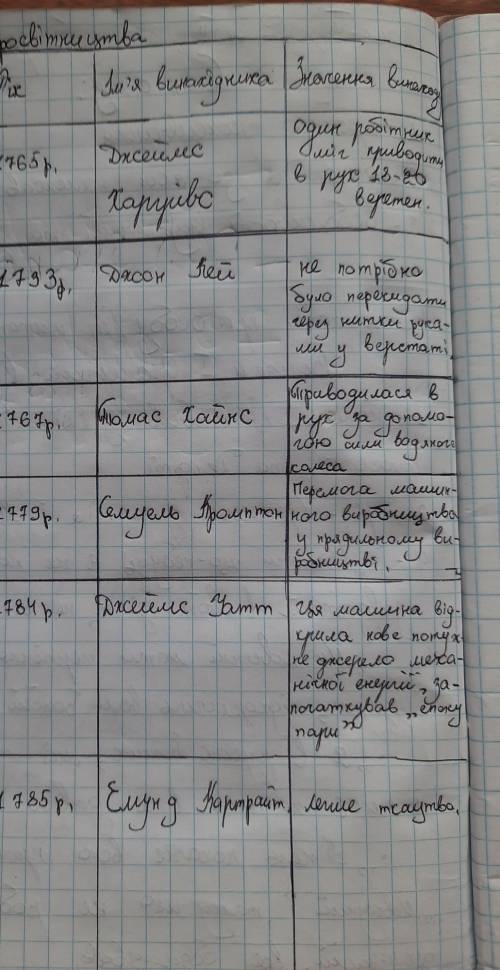 росвітництва
Рік Ім'я винахідника Значення винаходу
1765р. Джеймс Харгрівс Один робітник
міг приводити
в рух 18-20
веретен.
1793р. Джон Кей не потрібно
було перекидати
через нитки рука-
ми у верстаті.
1767р. Томас Хайнс Приводилася в
рух за допомо-
гою сили водяного
колеса
1779р. Семуель Кромптон Перемога машин-
ного виробництва
у прядильному ви-
робництві.
1784р. Джеймс Уатт Ця машина від-
крила нове потуж-
не джерело меха-
нічної енергії, за-
початкував „епоху
пари"
1785р. Емунд Картрайт легше ткацтво.